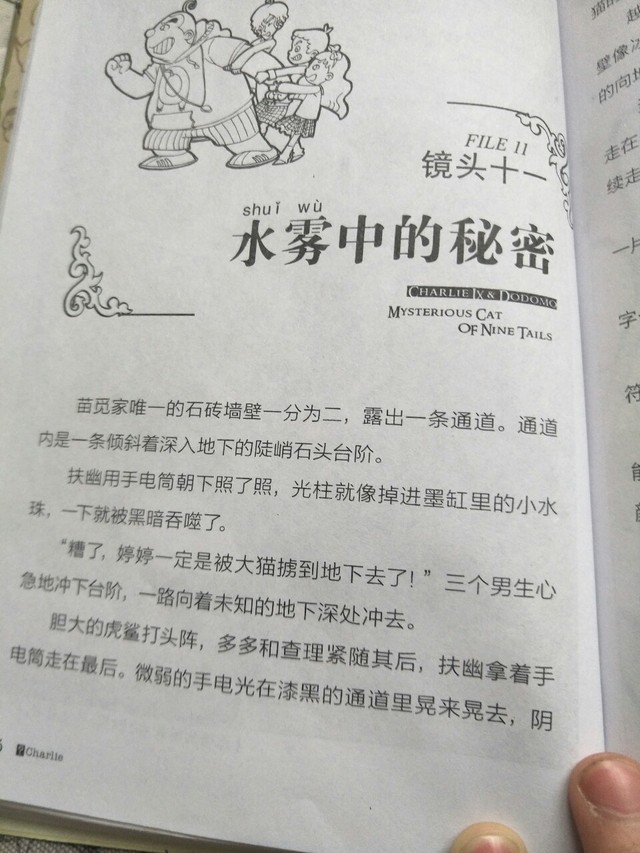 FILE 11
镜头十一
shuǐ wù
水雾中的秘密
CHARLIE IX & DODOMO
MYSTERIOUS CAT
OF NINE TAILS
苗觅家唯一的石砖墙壁一分为二，露出一条通道。通道
内是一条倾斜着深入地下的陡峭石头台阶。
扶幽用手电筒朝下照了照，光柱就像掉进墨缸里的小水
珠，一下就被黑暗吞噬了。
“糟了，婷婷一定是被大猫掳到地下去了！”三个男生心
急地冲下台阶，一路向着未知的地下深处冲去。
胆大的虎鲨打头阵，多多和查理紧随其后，扶幽拿着手
电筒走在最后。微弱的手电光在漆黑的通道里晃来晃去，阴
Charlie
越
壁像冰
的向地
走在
续走
一片
字
符
能